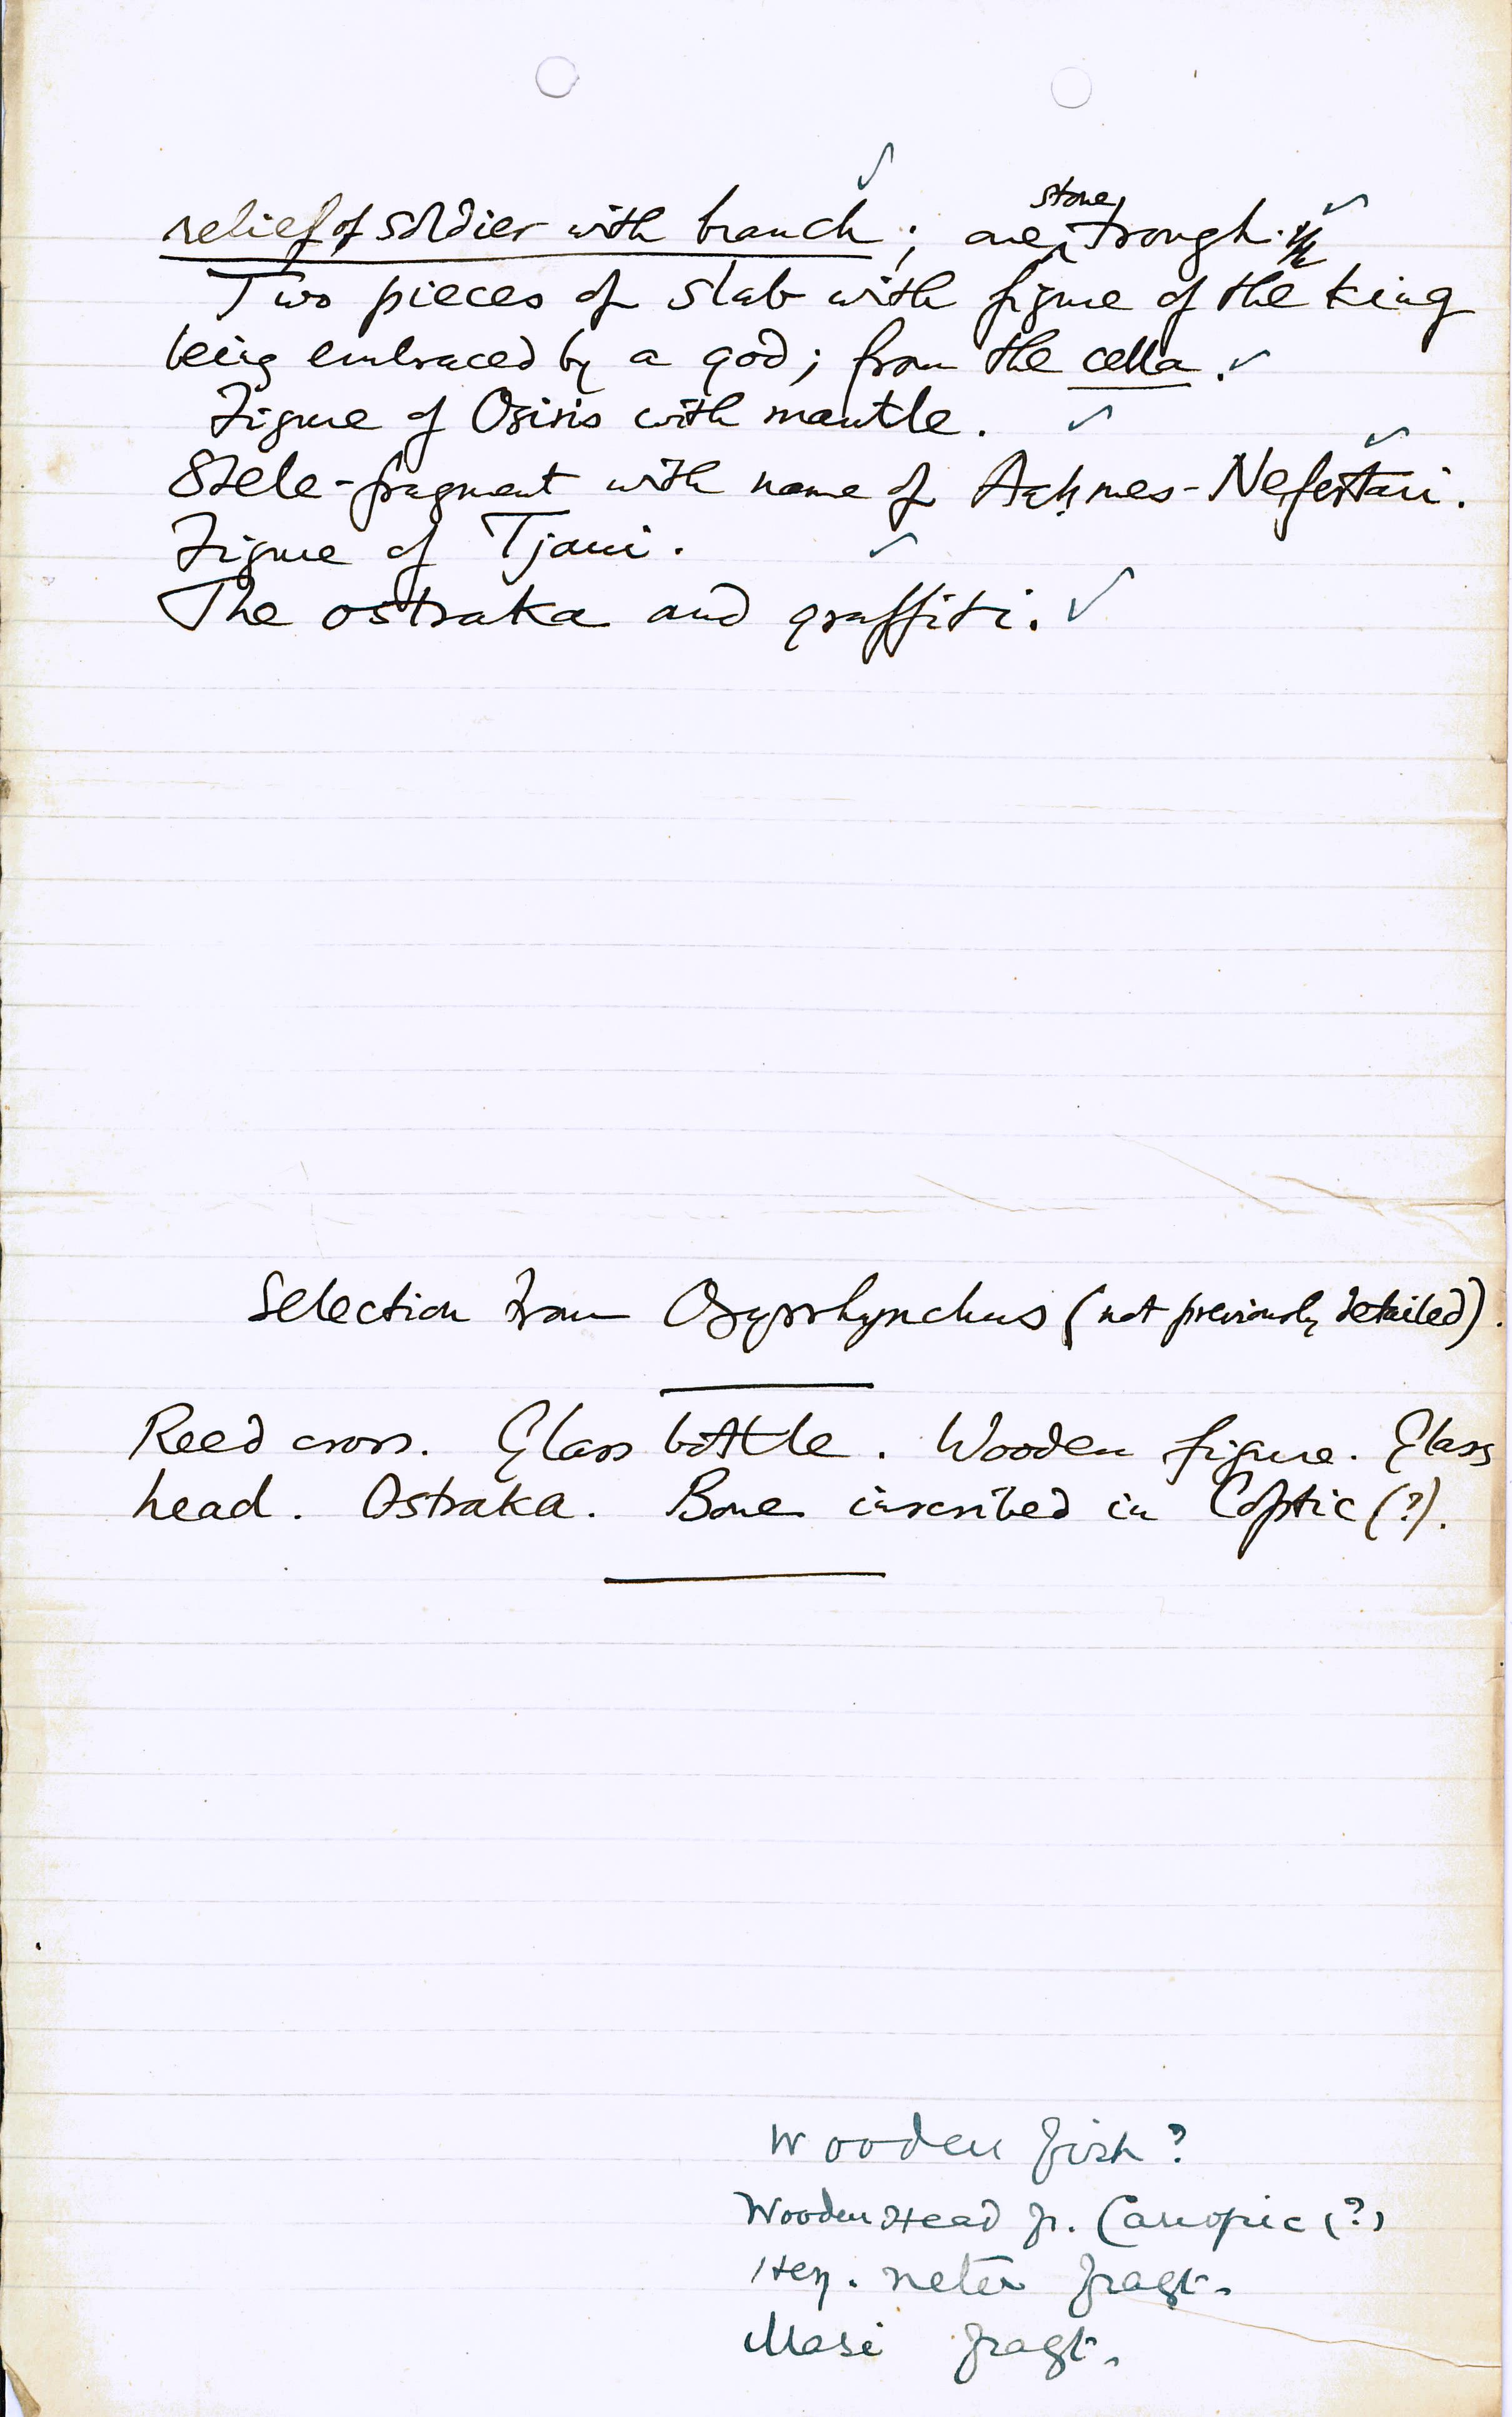 relief of soldier with branch; one stone trough.
Two pieces of slab with figure of the king
being embraced by a god; from the cella.
Figure of Osiris with mantle.
Stele-fragment with name of Aaḥmes-Nefertari.
Figure of Tjaui.
The ostraka and graffiti.
Selection from Oxyrrhynchus (not previously detailed).
Reed cross. Glass bottle. Wooden figure. Glass
head. Ostraka. Bone inscribed in Coptic (?).
Wooden fish?
Wooden Head fr. Canopic (?)
neter fragt.
fragt.